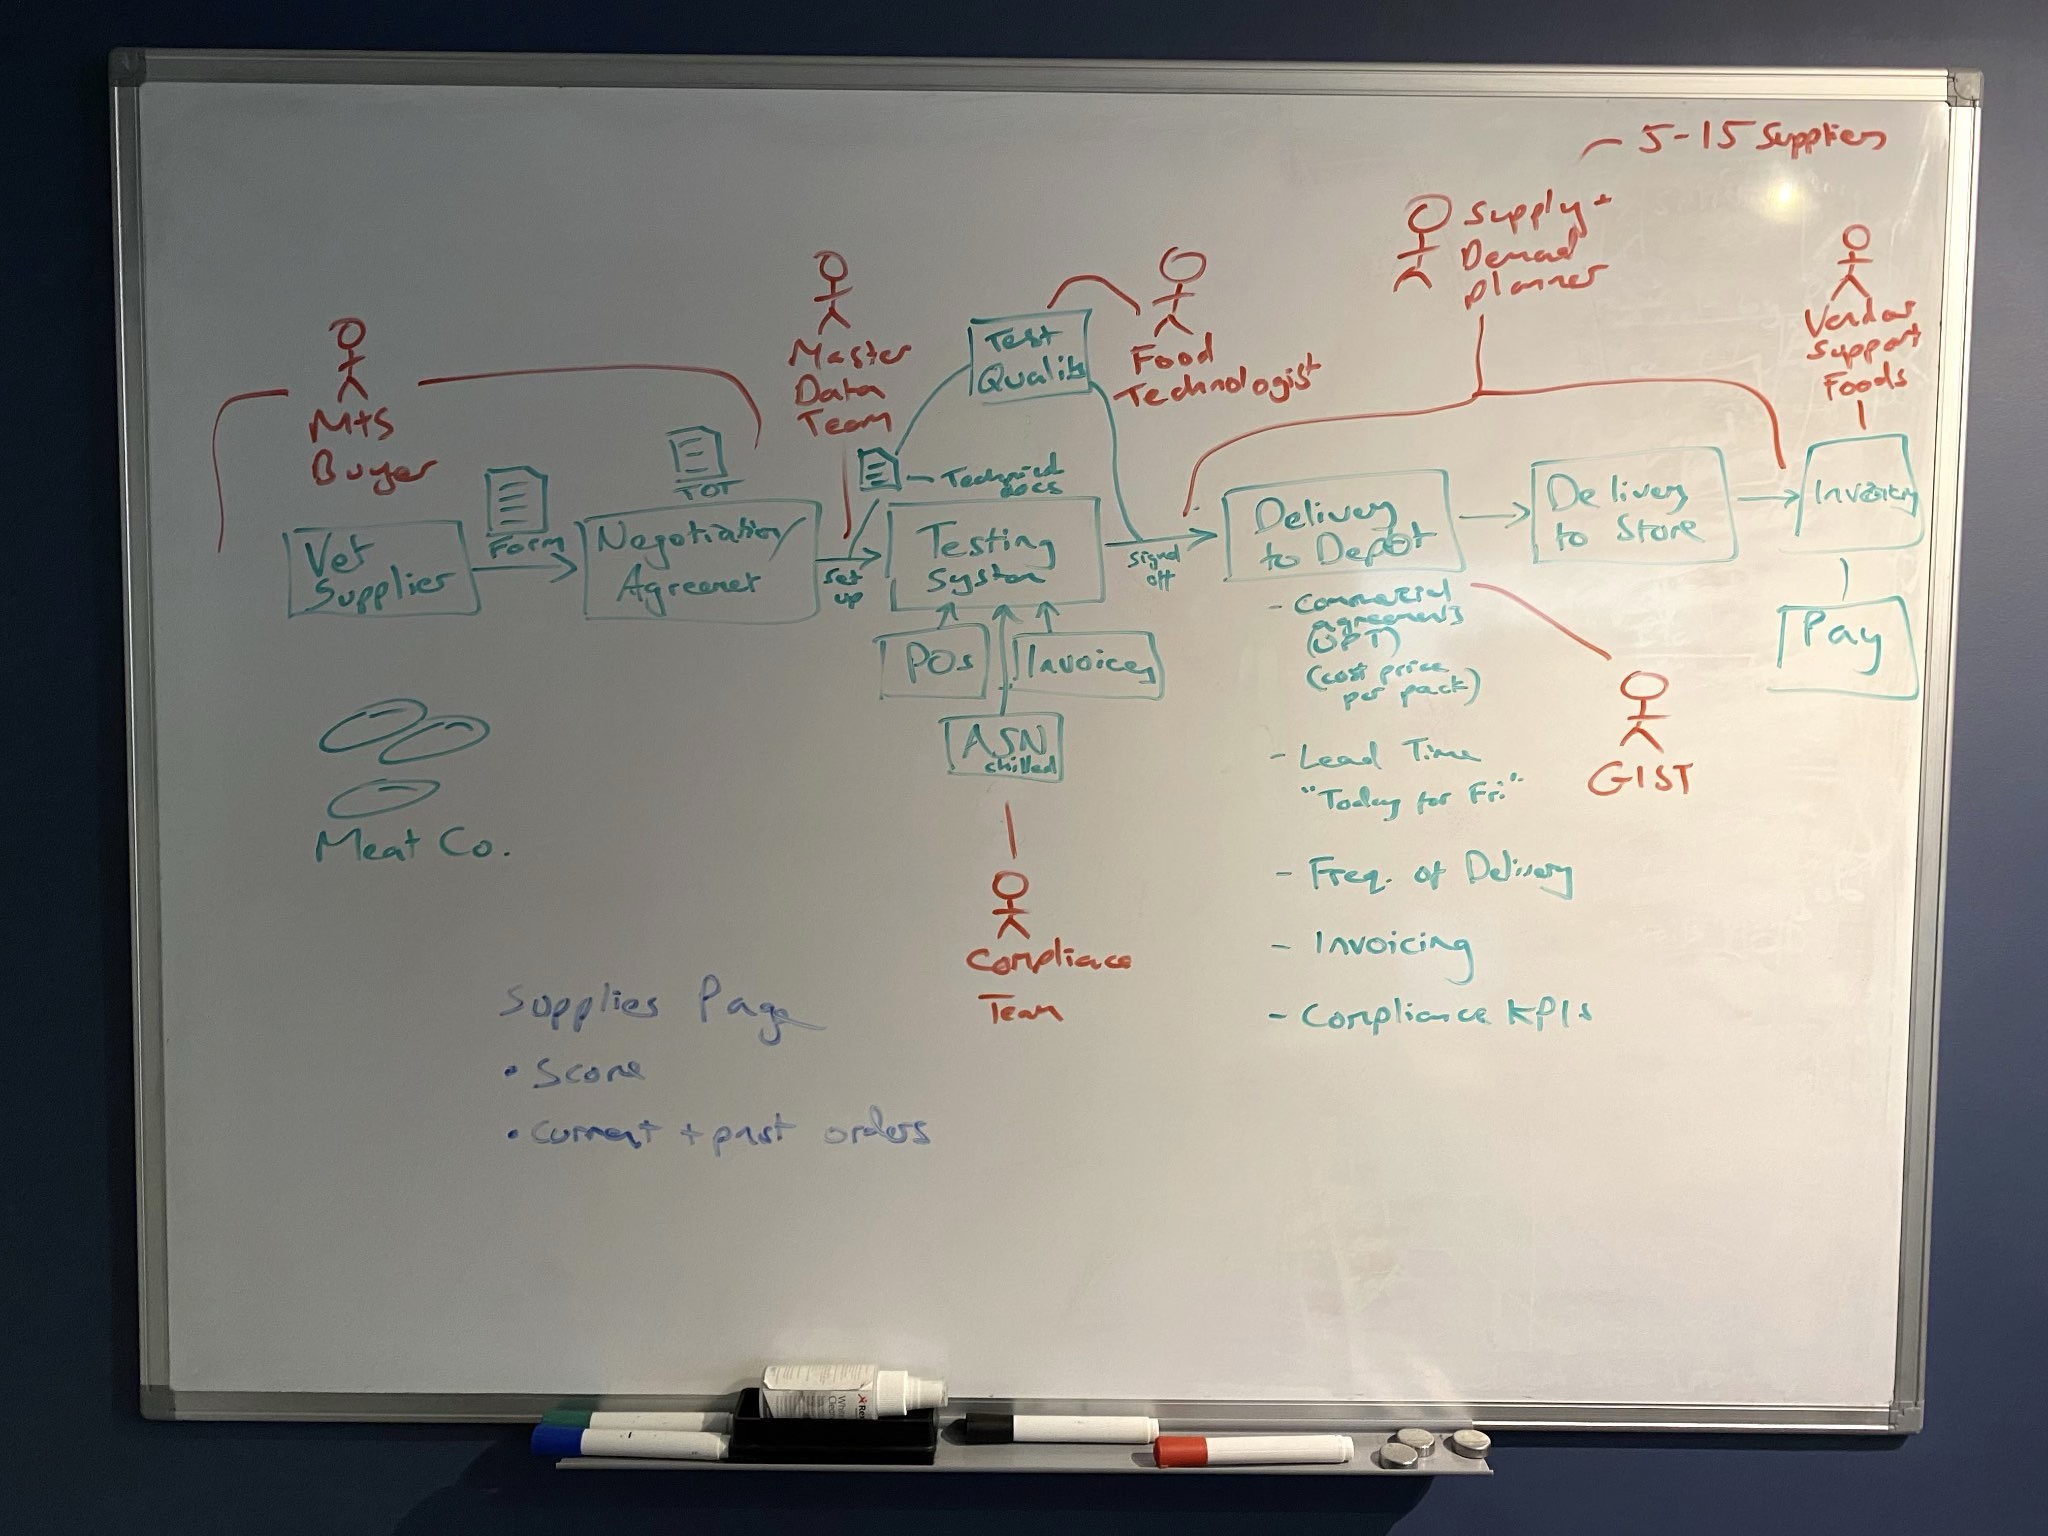 5-15 Suppliers
Supply +
Demand
planner
Vendor
Support
Foods
M+S
Buyer
Master
Data
Team
Test
Quality
Food
Technologist
Form
TOT
Technical
docs
Vet
Supplier
Negotiation/
Agreement
set
up
Testing
System
signed
off
Delivery
to Depot
Delivery
to Store
Pay
POs
Invoices
ASN
chilled
- Commercial
agreements
(cost price
per pack)
- Lead Time
"Today for Fri"
- Freq. of Delivery
- Invoicing
- Compliance KPIs
GIST
Meat Co.
Compliance
Team
Supplies Page
• Score
• current + past orders